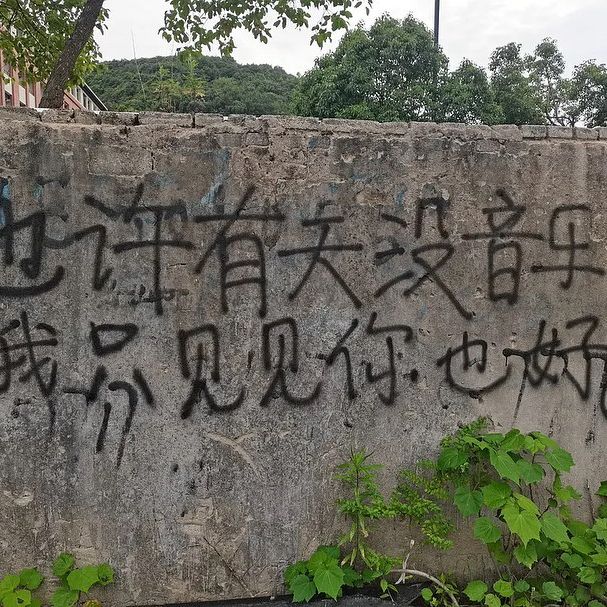 也许有天没音乐
我只见见你也好